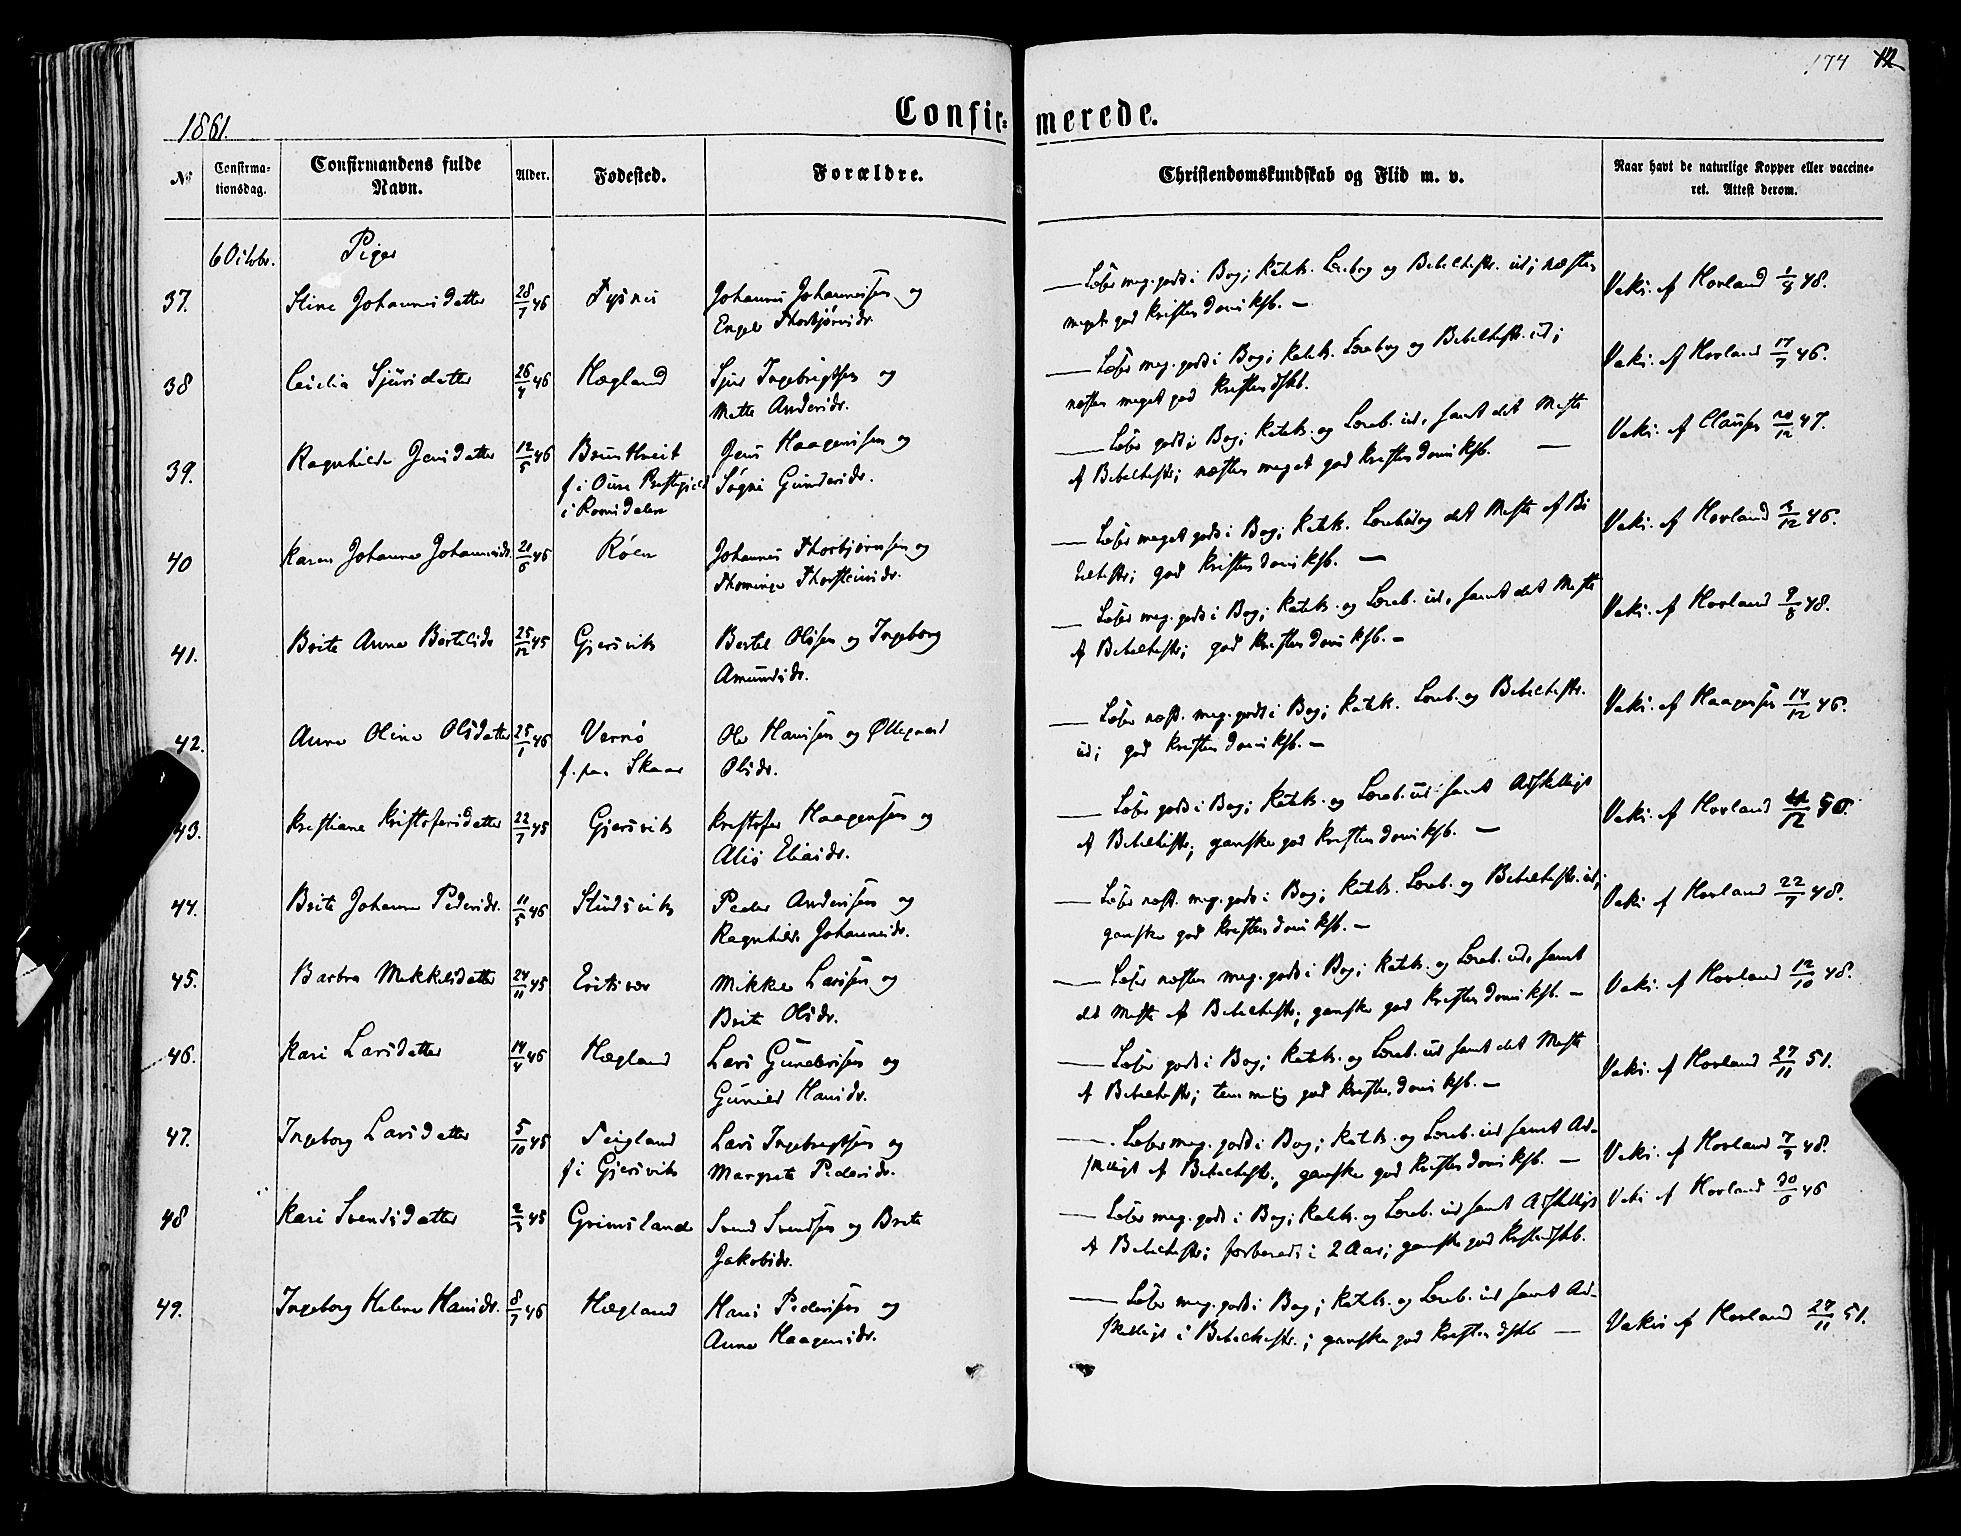 174 12
Confirmerede.
1861.
№ Confirmationsdag. Confirmandens fulde Navn. Alder. Fødested. Forældre. Christendomskundskab og Flid m. v. Naar havt de naturlige Kopper eller vaccineret. Attest derom.
6 Octobr. Piger
37. Stine Johannesdatter 28/7 46 Tysnes Johannes Johannessen og
Engel Thorbjørnsdr.
— Læser meg. godt i Bog; Katek. Lærebog og Bibelhistr. ud; næsten
meget god Kristendomsksb. —
Vaks. af Hovland 48.
38 Cicilia Sjursdatter 26/4 46 Hægland Sjur Ingebrigtsen og
Mette Andersdr.
— Læser meg. godt i Bog; Katek. Lærebog og Bibelhistr. ud;
næsten meget god Kristendskb.
Vaks. af Hovland 17/7 46.
39. Ragnhilde Jensdatter 12/5 46 Bruntveit
f i Oure Prestegield
i Romsdalen
Jens Haagensen og
Søgni Gundersdr.
— Læser godt i Bog; Katek. og Læreb. ud, samt det Meste
af Bibelhistr; næsten meget god Kristendomsksb. —
Vaks. af Clausen 20/12 47.
40 Karen Johanne Johannesdr. 21/6 46 Røen Johannes Thorbjørnsen og
Thominge Thorsteinsdr.
— Læser meget godt i Bog; Katek. Lærebog det Meste af Bi
belhistr; god Kristendomsksb. —
Vaks. af Hovland 46.
41. Brite Anne Bertelsdr 25/12 45 Gjersvik Bertel Olsen og Ingeborg
Amundsdr.
— Læser meg. godt i Bog; Katek. og Læreb. ud, samt det Meste
af Bibelhistr; god Kristendomsksb. —
Vaks. af Hovland 9/8 48.
42. Anne Oline Olsdatter 25/1 46 Vernø
f. paa Skaar
Ole Hansen og Øllegaard
Olsdr.
— Læser næst. meg. godt i Bog; Katek. Læreb. og Bibelhistr.
ud; god Kristendomsksb. —
Vaks. af Haagensen 14/12 46.
43. Kristiane Kristofersdatter 22/7 45 Gjersvik Kristofer Haagensen og
Alis Eliasdr.
— Læser godt i Bog; Katek. og Læreb. ud samt Adskilligt
af Bibelhistr; ganske god Kristendomsksb. —
Vaks. af Hovland
44. Brite Johanne Pedersdr. 11/5 46 Studsvik Peder Andersen og
Ragnhilde Johannesdr.
— Læser næst. meg. godt i Bog; Katek. Læreb. og Bibelhistr. ud;
ganske god Kristendomsksb. —
Vaks. af Hovland 22/7 48.
45. Barbra Mikkelsdatter 24/11 45 Eritsvær Mikkel Larsen og
Brite Olsdr.
— Læser næsten meg. godt i Bog; Katek. og Læreb. ud, samt
det Meste af Bibelhistr; ganske god Kristendomsksb. —
Vaks. af Hovland 12/10 48.
46. Kari Larsdatter 14/4 46 Hægland Lars Gundersen og
Gunild Hansdr.
— Læser godt i Bog; Katek. og Læreb. ud samt det Meste
af Bibelhistr; temmelig god Kristendomsksb. —
Vaks. af Hovland 27/11 51.
47. Ingeborg Larsdatter 5/10 45 Teigland
f i Gjersvik
Lars Ingebrigtsen og
Margrete Pedersdr.
— Læser meg. godt i Bog; Katek. og Læreb. ud samt Ad-
skilligt af Bibelhistr., ganske god Kristendomsksb. —
Vaks. af Hovland 48.
48 Kari Svendsdatter 45 Grimsland Svend Svendsen og Brite
Jakobsdr.
— Læser meg. godt i Bog; Katek. og Læreb. ud samt Adskilligt
af Bibelhistr; forberedt i 2 Aar; ganske god Kristendskb.
Vaks af Hovland 30/6 46
49. Ingeborg Helene Hansdr. 8/7 46 Hægland Hans Pedersen og
Anne Haagensdr.
— Læser meg. godt i Bog; Katek. og Læreb. ud samt Ad-
skilligt i Bibelhistr.; ganske god Kristendskb —
Vaks af Hovland 27/11 51.